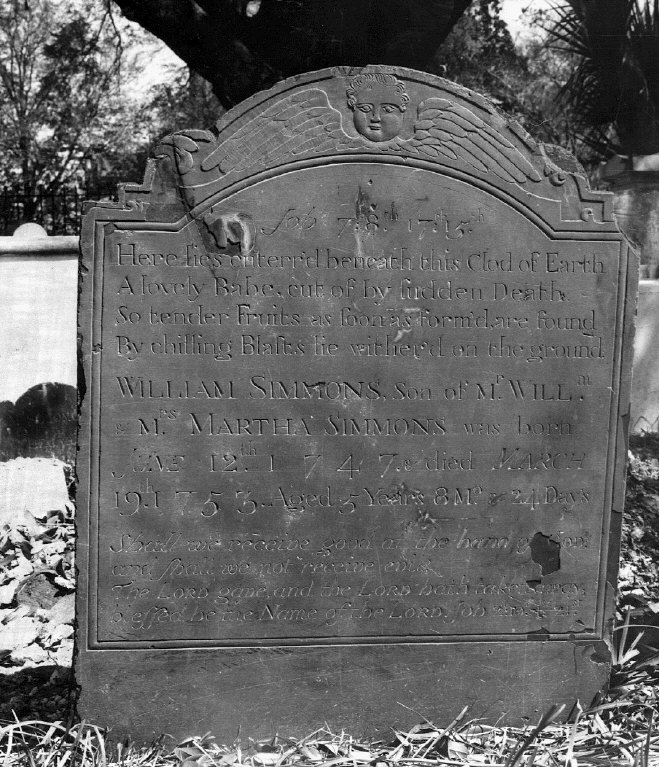 Job 7. 8th 17th 15th
Here lies enterr'd beneath this Clod of Earth
A lovely Babe, cut of by ſudden Death,
So tender Fruits as ſoon as form'd, are found
By chilling Blaſts lie wither'd on the ground.
WILLIAM SIMMONS, Son of Mr. WILLm.
& Mrs. MARTHA SIMMONS was born
JUNE 12th. 1 7 4 7. & died MARCH
19th. 1 7 5 3. Aged 5 Years 8 Ms & 24 Days
Shall we receive good at the hand
and ſhall we not receive
The LORD gave, and the LORD hath taken away,
bleſſed be the Name of the LORD. Job